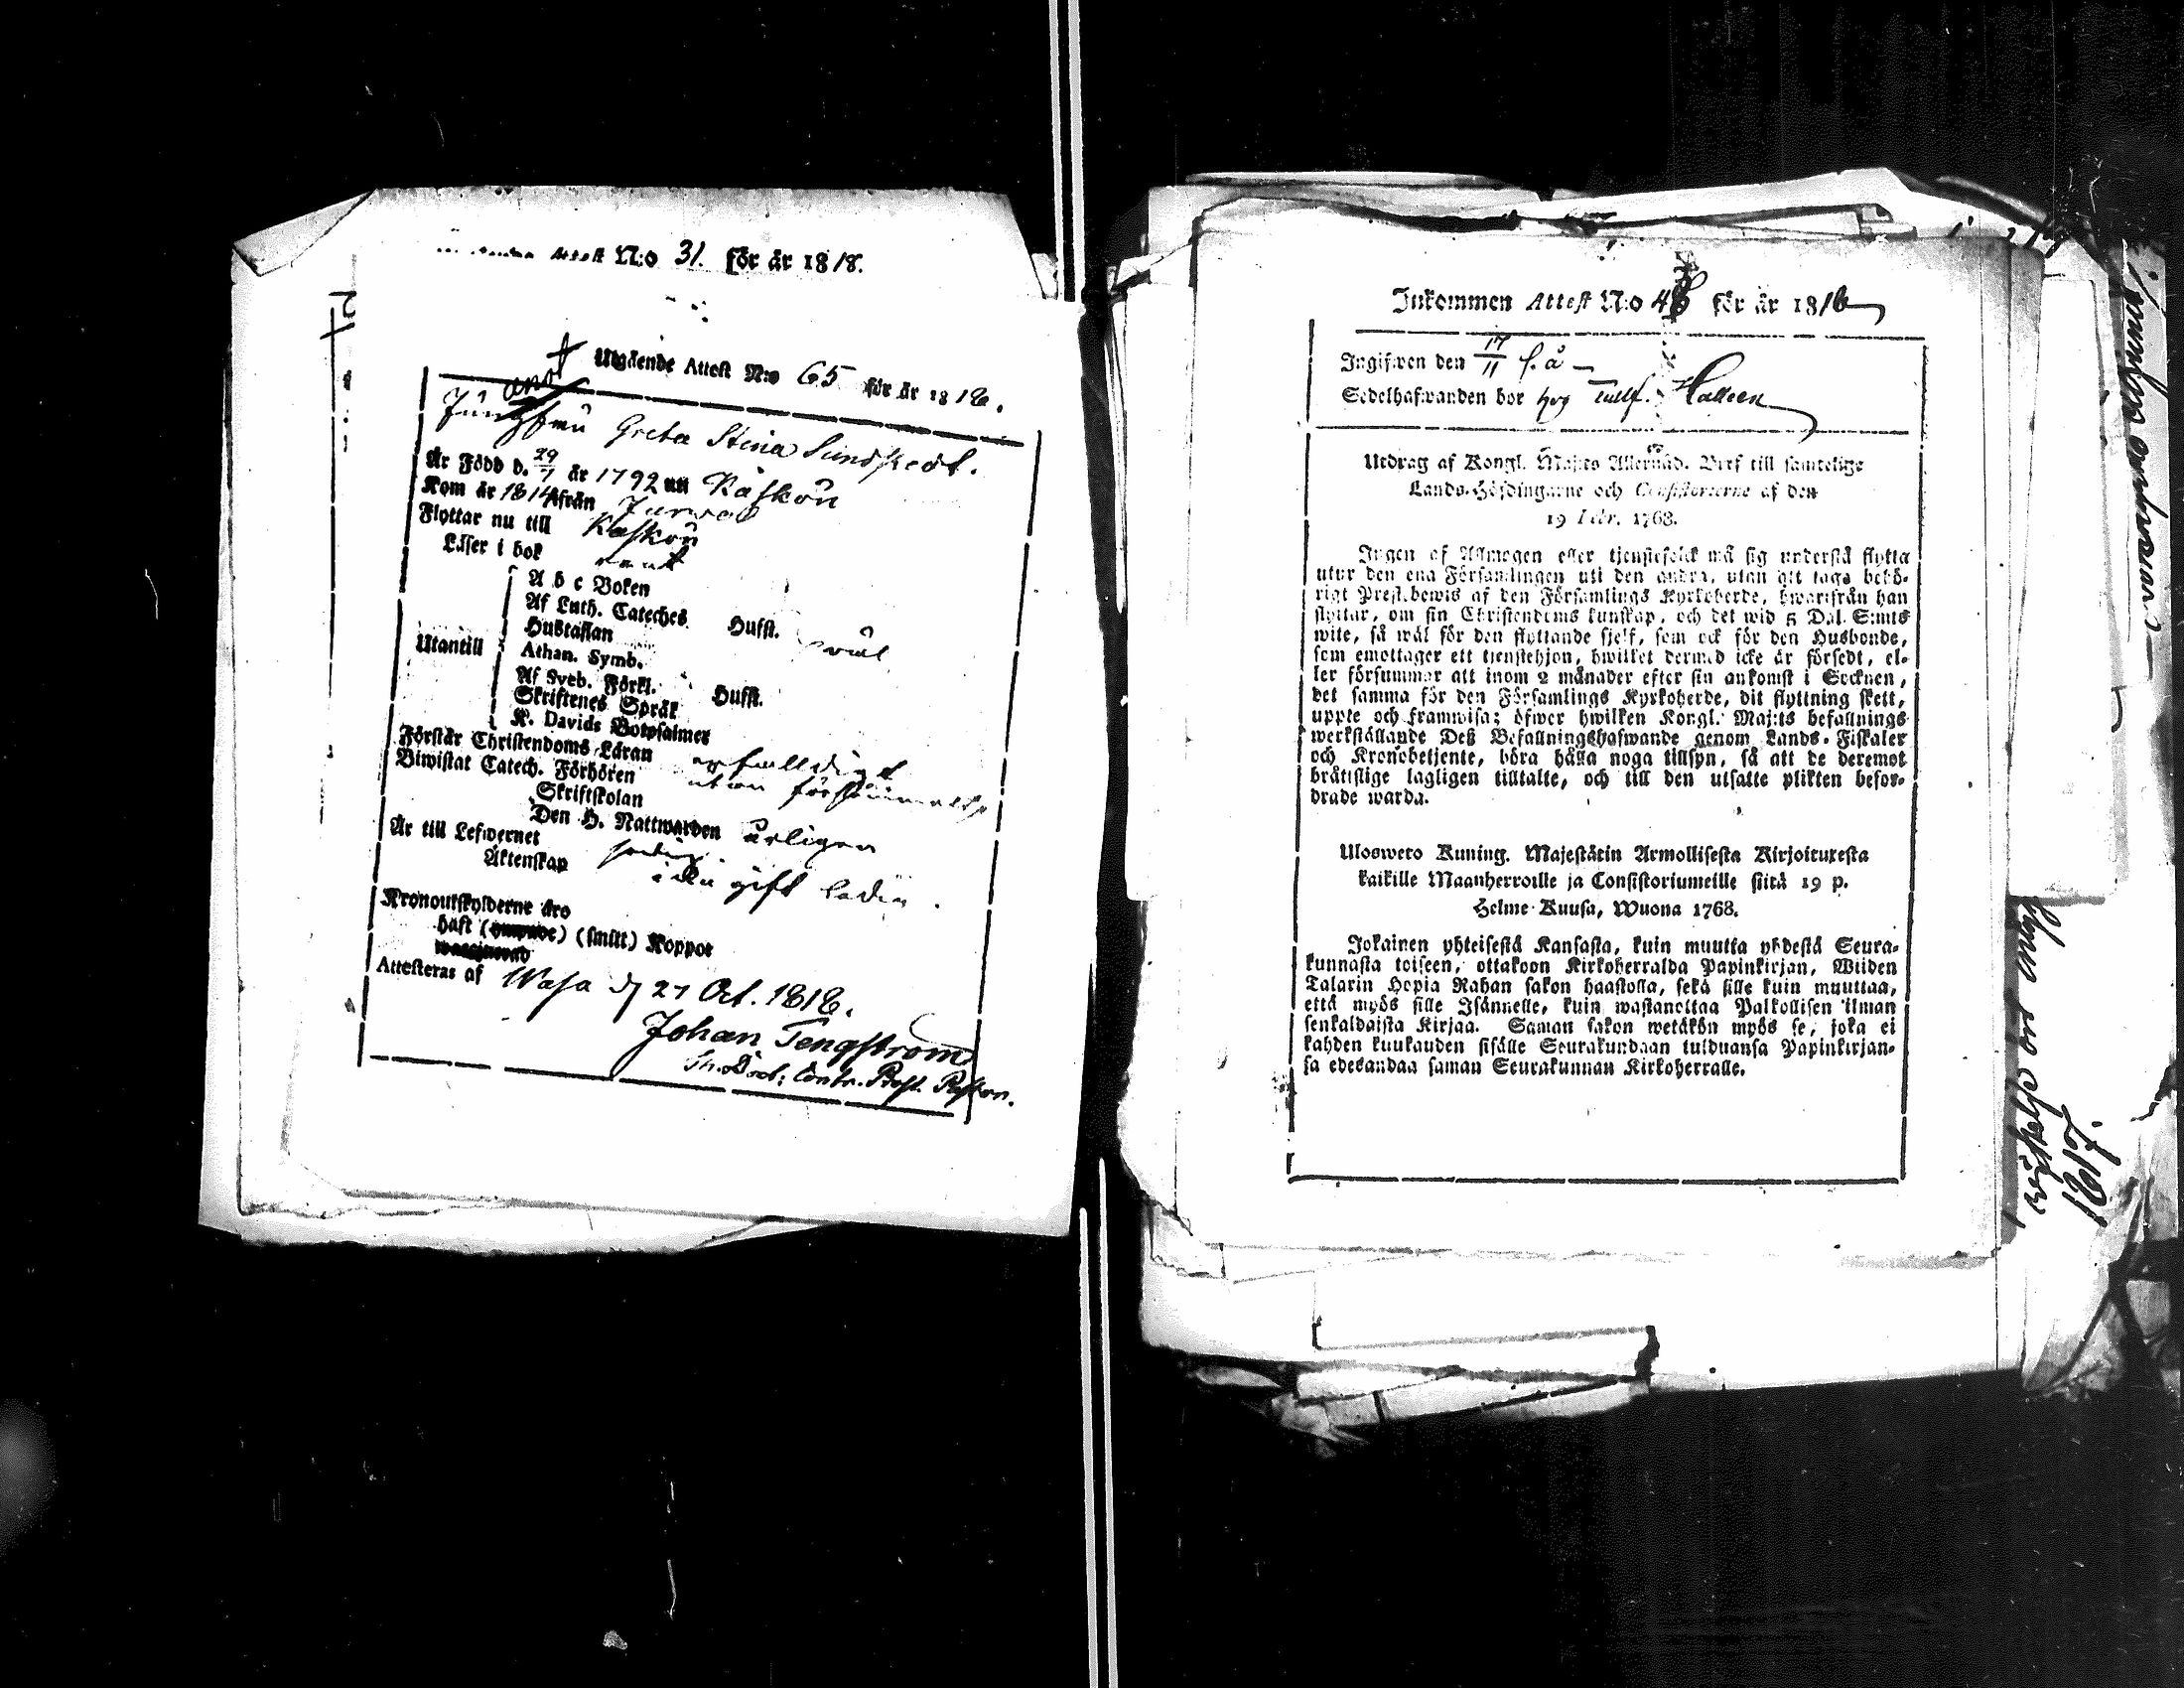 Attest N:o 31. för år 1818.
Utgående Attest N:o 65 för år 1818.
Jungfru Greta Stina Sundstedt.
Är Född d. 29/7 år 1792 uti Kaskön
Kom år 1814 från Jurva
Flyttar nu till Kaskön
Läser i bok rent
A b c Boken
Af Luth. Cateches Husfl. väl
Hustaflan
Utantill
Athan. Symb.
Af Sveb. Förkl. Husfl.
Skriftenes Språk
K. Davids Botpsalmer
Förstår Christendoms Läran enfalldigt
Biwistat Catech. Förhören utan försummelse
Skriftskolan
Den H. Nattwarden årligen
Är till Lefwernet
Äktenskap gift ledig.
Kronoutskylderne äro
haft (smitt) Koppor
Attesteras af Wasa d 27 Oct. 1818.
Johan Tengström
Th. Doct: Contr. Prost. Pastor.
Inkommen Attest N:o 48 för år 1816
Ingifwen den 17/11 s. å
Sedelhafwanden bor hos Tullf.
Utdrag af Kongl. Maj:ts Allernåd. Bref till samtelige
Lands-Höfdingarne och Consistorierne af den
19 Febr. 1768.
Ingen af Allmogen eller tjenstefolck må sig understå flytta
utur den ena Församlingen uti den andra, utan att taga behö-
rigt Prest-bewis af den Församlings Kyrkoherde, hwarifrån han
flyttar, om sin Christendoms kunskap, och det wid 5 Dal. S:mts
wite, så wäl för den flyttande sjelf, som ock för den Husbonde,
som emottager ett tjenstehjon, hwilket dermed icke är försedt, el-
ler försummar att inom 2 månader efter sin ankomst i Socknen,
det samma för den Församlings Kyrkoherde, dit flyttning skett,
uppte och framwisa; öfwer hwilken Kongl. Maj:ts befallnings
werkställande Deß Befallningshafwande genom Lands-Fiskaler
och Kronobetjente, böra hålla noga tillsyn, så att de deremot
bråttslige lagligen tilltalte, och till den utsatte plikten befor-
drade warda.
Ulosweto Kuning. Majestätin Armollisesta Kirjoituxesta
kaikille Maanherroille ja Consistoriumeille siitä 19 p.
Helme-Kuusa, Wuona 1768.
Jokainen yhteisestä Kansasta, kuin muutta yhdestä Seura-
kunnasta toiseen, ottakoon Kirkoherralda Papinkirjan, Wiiden
Talarin Hopia Rahan sakon haastolla, sekä sille kuin muuttaa,
että myös sille Isännelle, kuin wastanottaa Palkollisen ilman
senkaldaista Kirjaa. Saman sakon wetäkön myös se, joka ei
kahden kuukauden sisälle Seurakundaan tulduansa Papinkirjan-
sa edesandaa saman Seurakunnan Kirkoherralle.
1817.